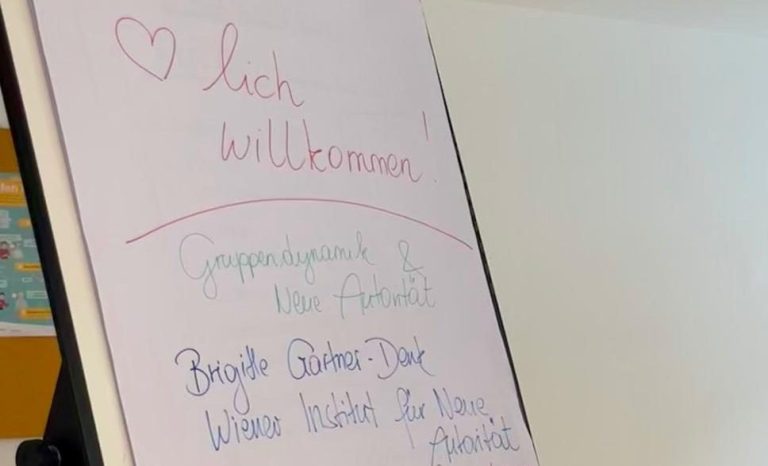 ♡ lich
willkommen!
Gruppendynamik &
Neue Autorität
Brigitte Gärtner-Denk
Wiener Institut für Neue
Autorität